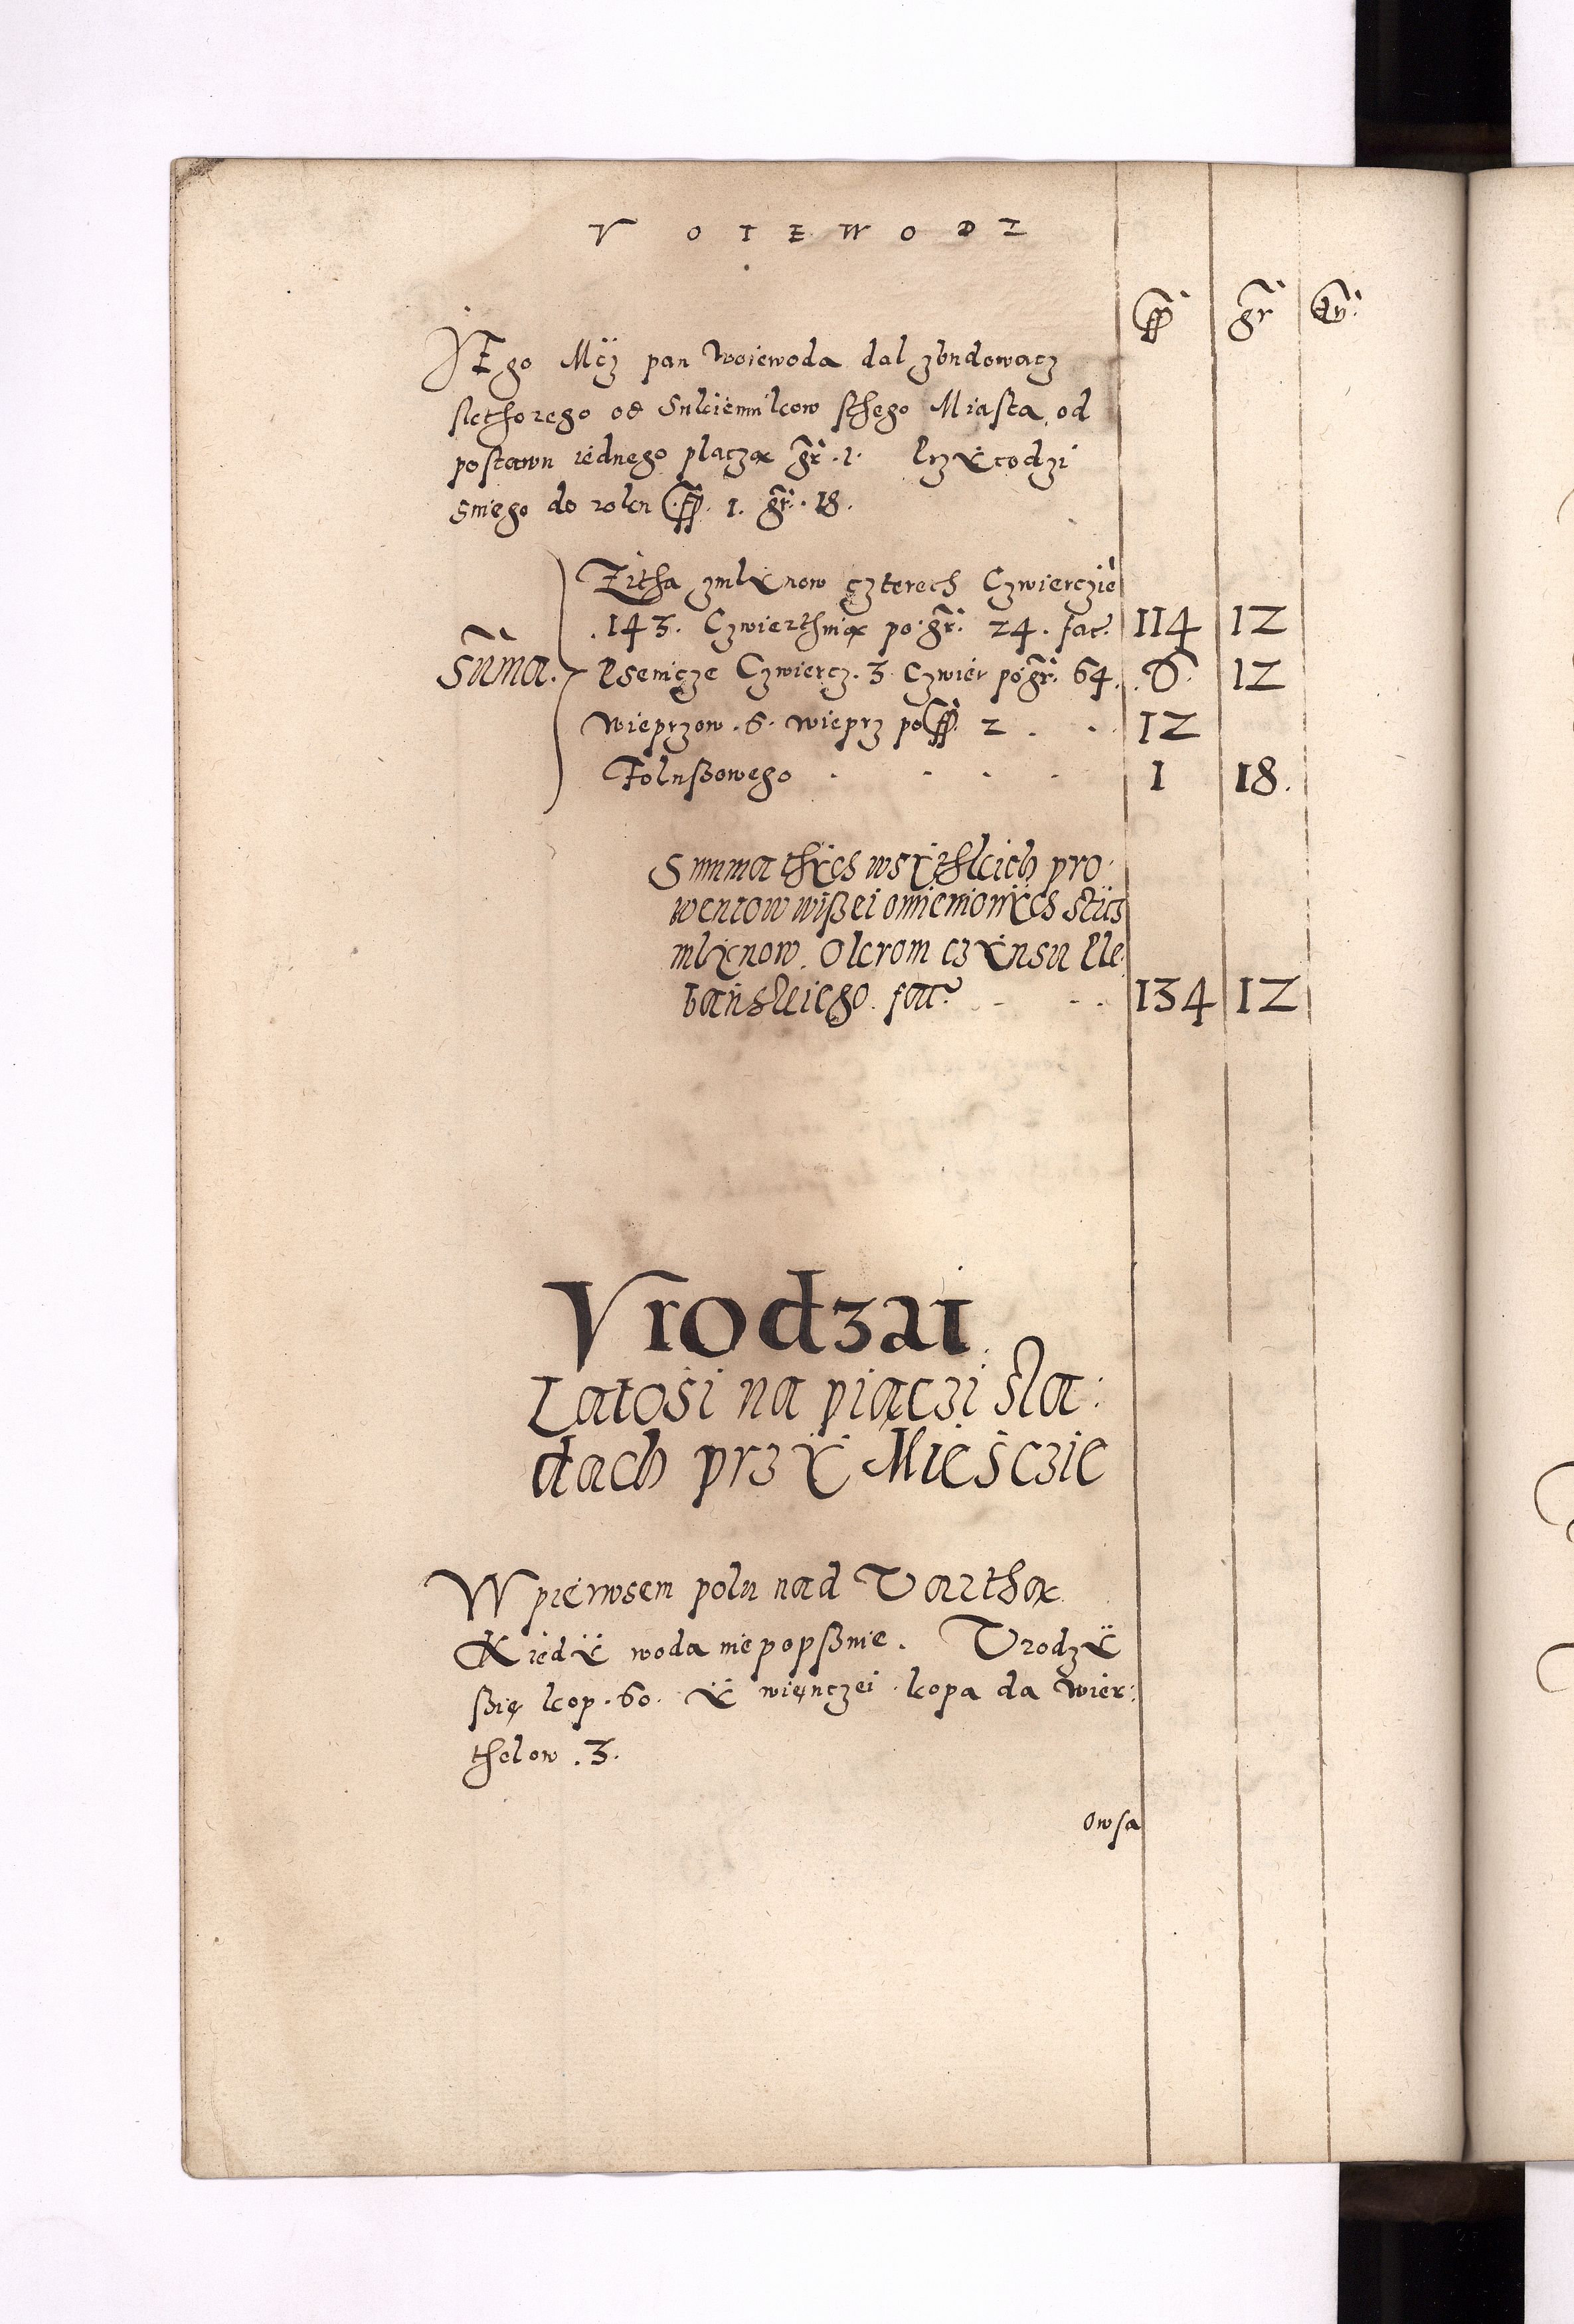 V O I E W O D Z
ff gr dn
JEgo Mcz pan Woiewoda dal zbudowacz
skthorego od Sukiennikow sthego Miasta, od
postawu iednego placzą gr. 1. Przẏcodzi
sniego do roku ff. 1. gr. 18.
Zitha zmlẏnow czterech Czwierczie
.143. Czwierthnią po gr. 24. fac. 114 12
Suma. Psenicze Czwiercz. 3 Czwier po gr. 64. 6 12
Wieprzow. 6. wieprz po ff. 2 . . 12
Folußowego . . . . 1 18.
Summa thẏch wsẏthkich pro
wentow wißei omienionẏch stẏch
mlẏnow. Okrom czẏnsu Ple
banskiego. fac. 134 12
Vrodzai
Latosi na piączi sla:
dach przẏ Mieśczie
W pierwsem polu nad Varthą
Kiedẏ woda niepopßuie. Vrodzẏ
ßię kop. 60. ẏ więnczei kopa da wier:
thelow .3.
Owsa